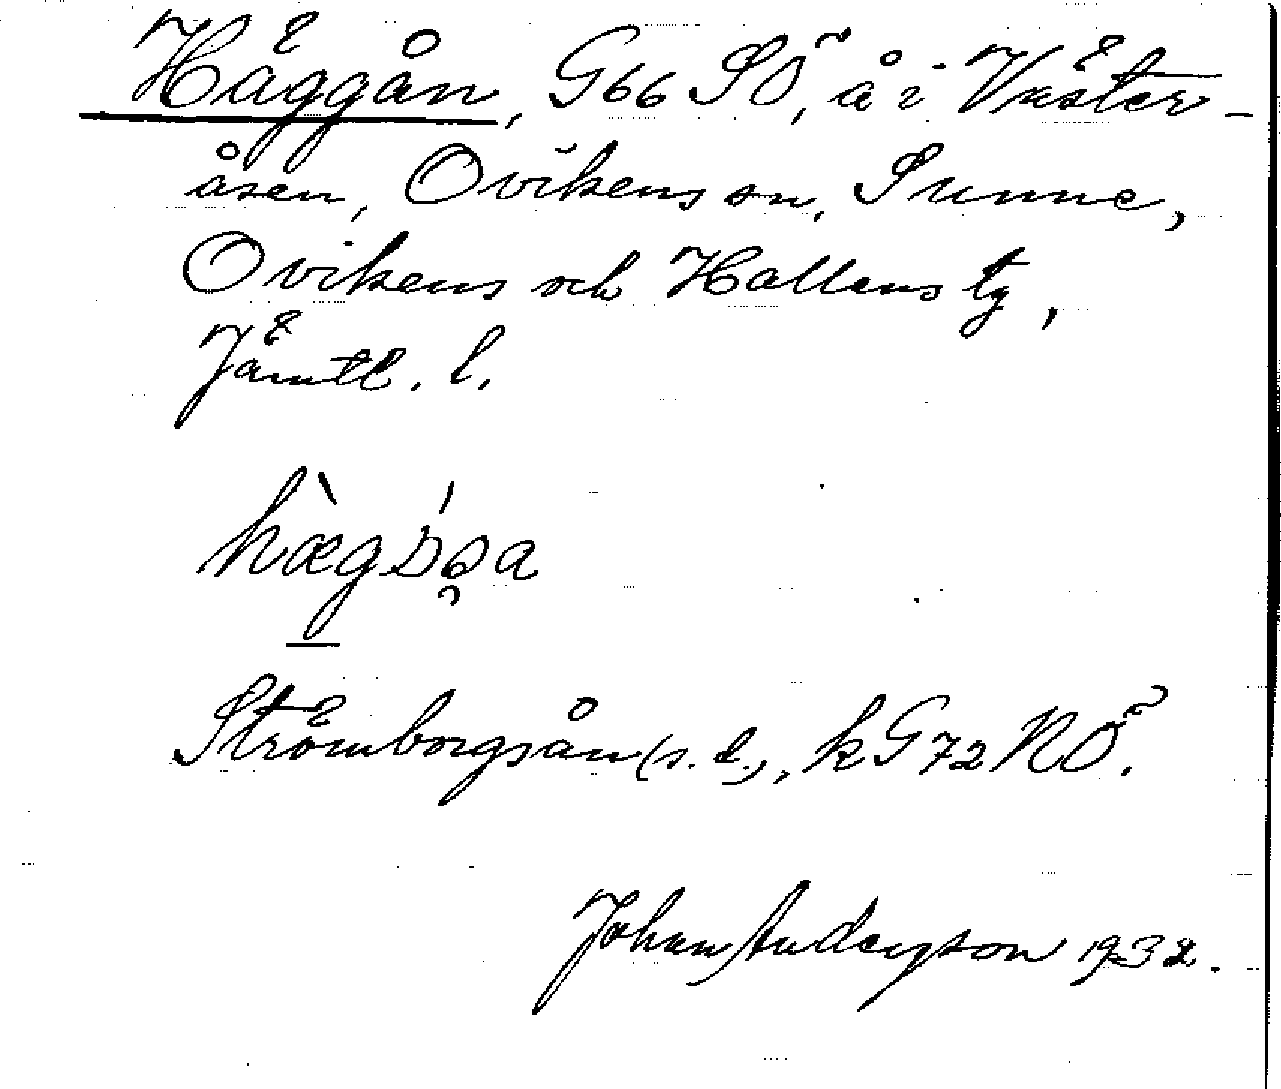 Häggån, G66 SÖ, å i Väster-
åsen, Ovikens sn, Sunne,
Ovikens och Hallens tg,
Jämtl. l.
Strömborgsån (s. d.), k G72 NÖ.
Johan Anderzson 1932.